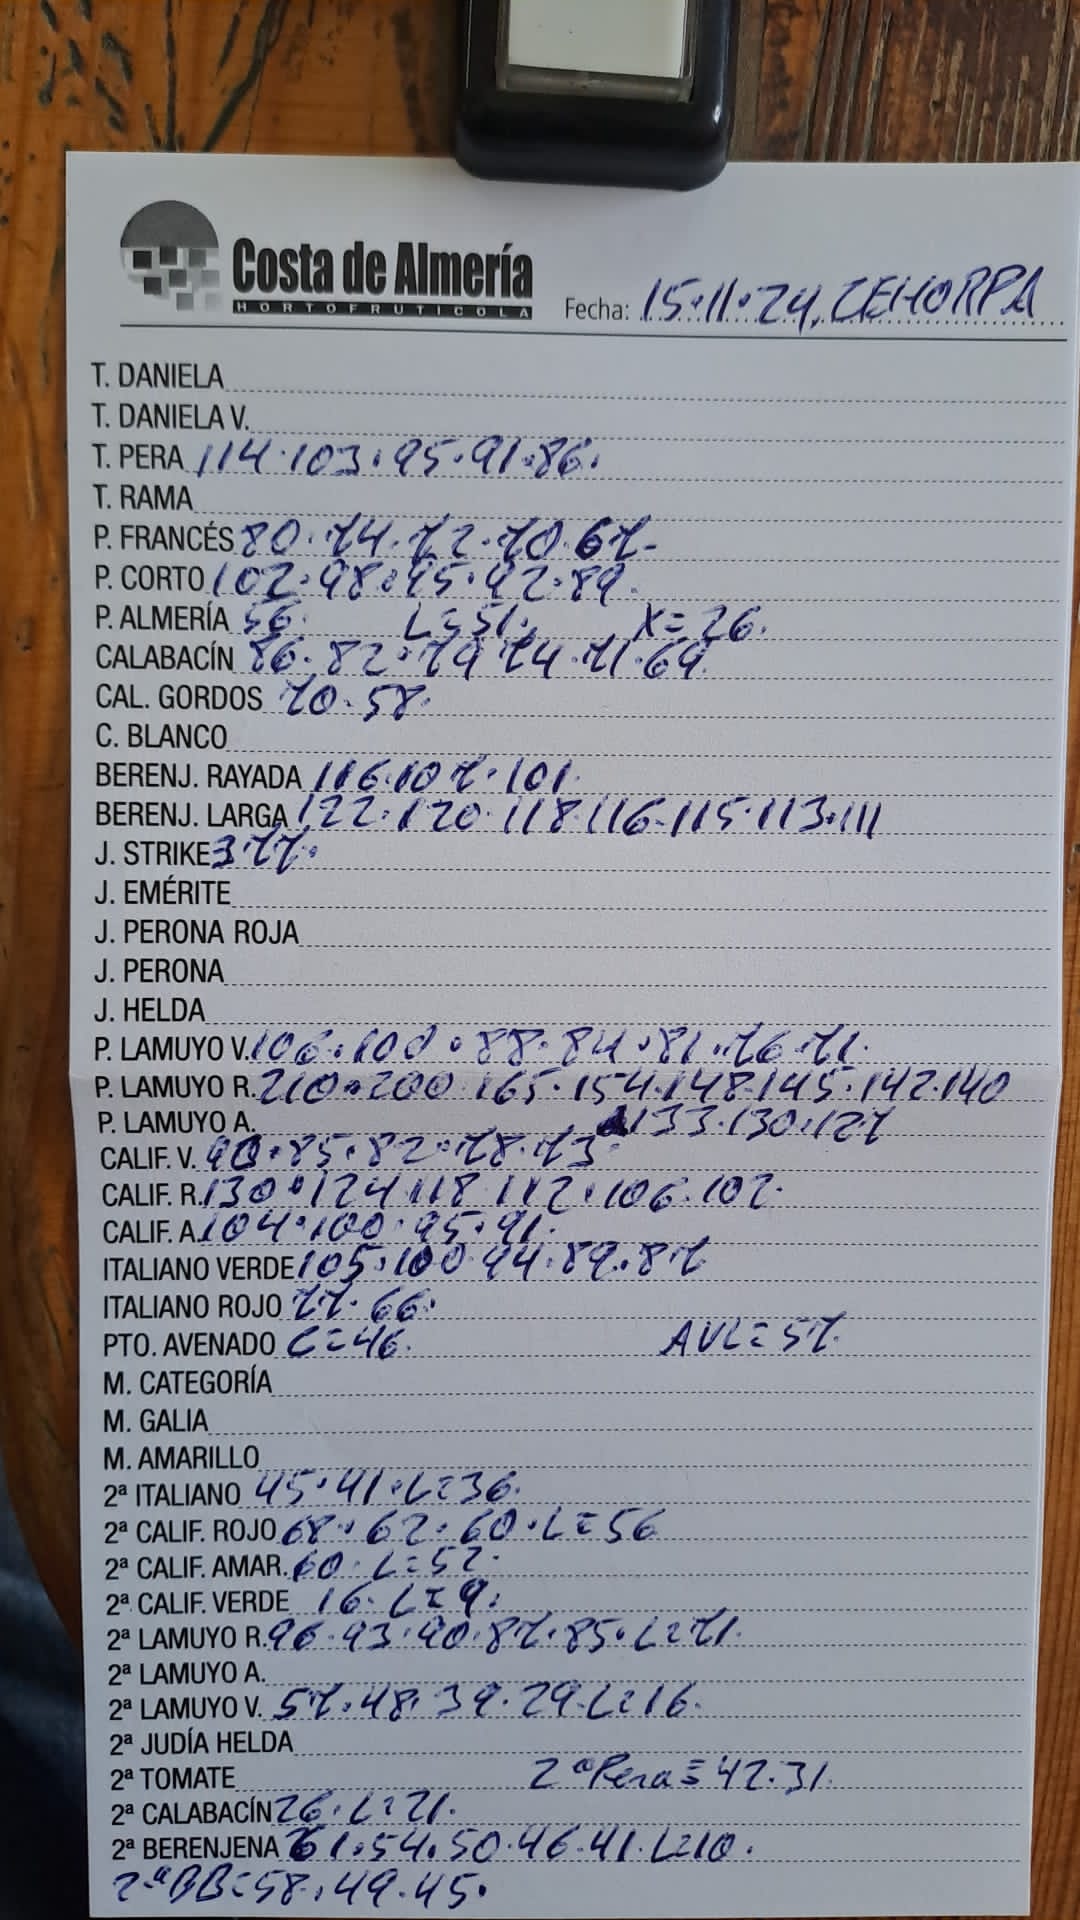 Costa de Almería
HORTOFRUTICOLA
Fecha: 15.11.24, CEHORPA
T. DANIELA
T. DANIELA V.
T. PERA 114.103.95.91.86.
T. RAMA
P. FRANCÉS 80.74.72.70.67-
P. CORTO 102.98.95.92.89.
P. ALMERÍA 56. L=51. X=26.
CALABACÍN 86.82.79.74.71.69.
CAL. GORDOS 70.58.
C. BLANCO
BERENJ. RAYADA 116.107.101.
BERENJ. LARGA 122.120.118.116.115.113.111
J. STRIKE 377.
J. EMÉRITE
J. PERONA ROJA
J. PERONA
J. HELDA
P. LAMUYO V. 106.100.88.84.81.76.71.
P. LAMUYO R. 210.200.165.154.148.145.142.140
P. LAMUYO A. 133.130.127
CALIF. V. 90.85.82.78.73
CALIF. R. 130.124.118.112.106.102.
CALIF. A. 104.100.95.91.
ITALIANO VERDE 105.100.94.89.87
ITALIANO ROJO 77.66.
PTO. AVENADO C=46. AVL=57.
M. CATEGORÍA
M. GALIA
M. AMARILLO
2ª ITALIANO 45.41.L=36.
2ª CALIF. ROJO 68.62.60.L=56
2ª CALIF. AMAR. 60.L=52.
2ª CALIF. VERDE 16.L=9.
2ª LAMUYO R. 96.93.90.87.85.L=71.
2ª LAMUYO A.
2ª LAMUYO V. 57.48.39.29.L=16.
2ª JUDÍA HELDA
2ª TOMATE 2ª Pera=42.31.
2ª CALABACÍN 26.L=21.
2ª BERENJENA 61.54.50.46.41.L=10.
2ªBB=58.49.45.